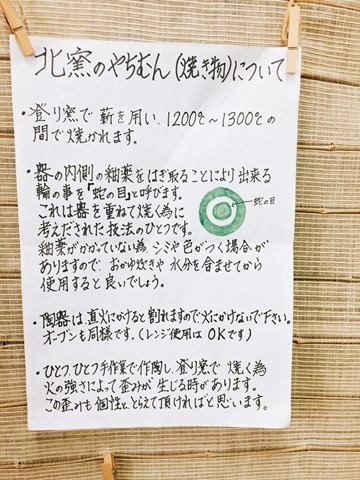 北窯のやちむん(焼き物)について
・登り窯で薪を用い、1200℃～1300℃の
間で焼かれます。
・器の内側の釉薬をはぎ取ることにより出来る
輪の事を「蛇の目」と呼びます。
これは器を重ねて焼く為に
考えだされた技法のひとつです。
釉薬がかかっていない為シミや色がつく場合が
ありますので、おかゆ炊きや水分を含ませてから
使用すると良いでしょう。
蛇の目
・陶器は、直火にかけると割れますので火にかけないで下さい。
オーブンも同様です。(レンジ使用はOKです)
・ひとつ、ひとつ手作業で作陶し、登り窯で焼く為
火の強さによって歪みが生じる時があります。
この歪みも個性と、とらえて頂ければと思います。